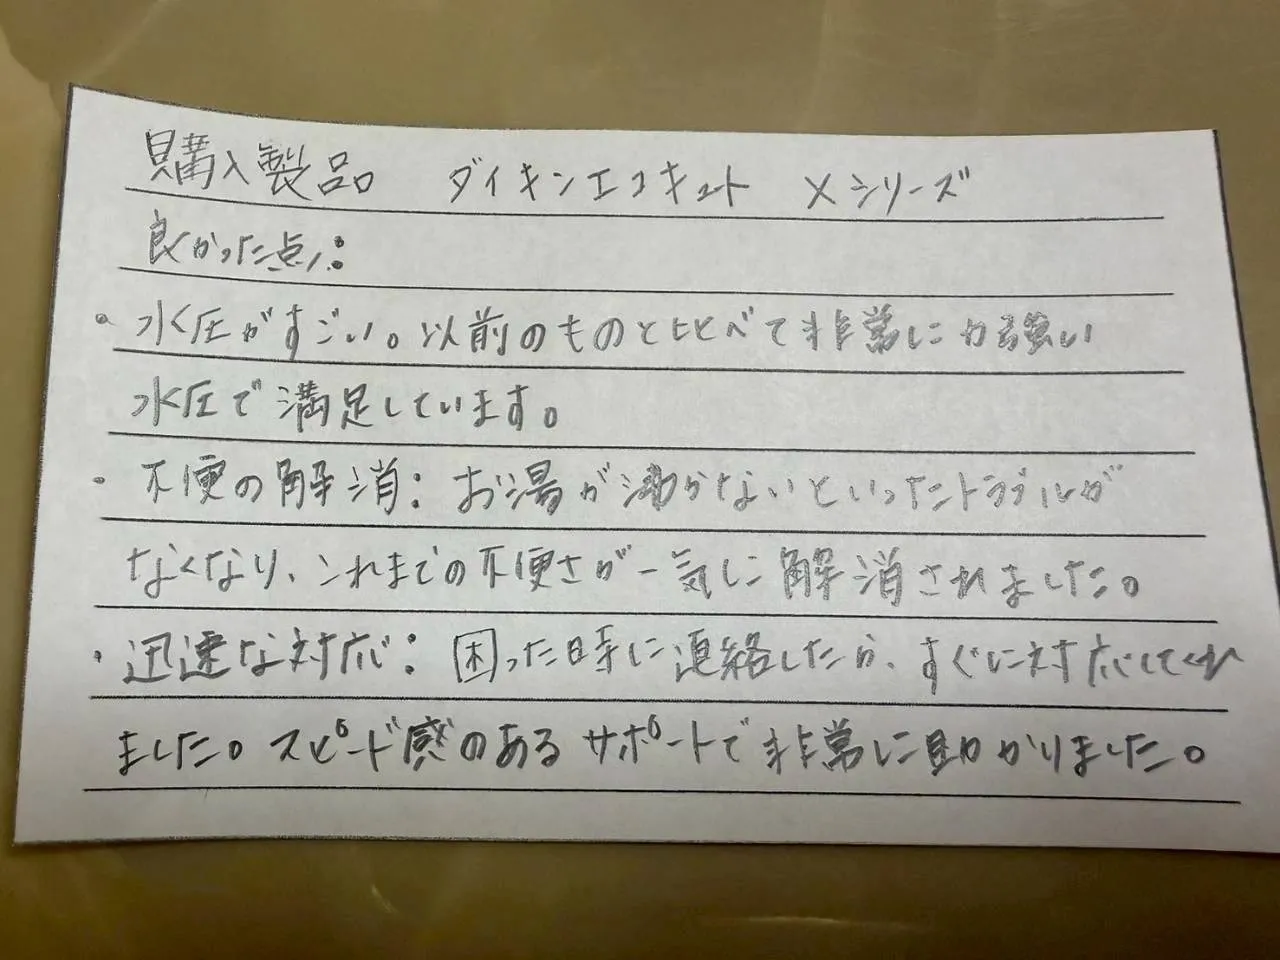 購入製品 ダイキンエコキュート Xシリーズ
良かった点:
・水圧がすごい。以前のものと比べて非常に力強い
水圧で満足しています。
・不便の解消:お湯が沸かないといったトラブルが
なくなり、これまでの不便さが一気に解消されました。
・迅速な対応:困った時に連絡したが、すぐに対応してくれ
ました。スピード感のあるサポートで非常に助かりました。